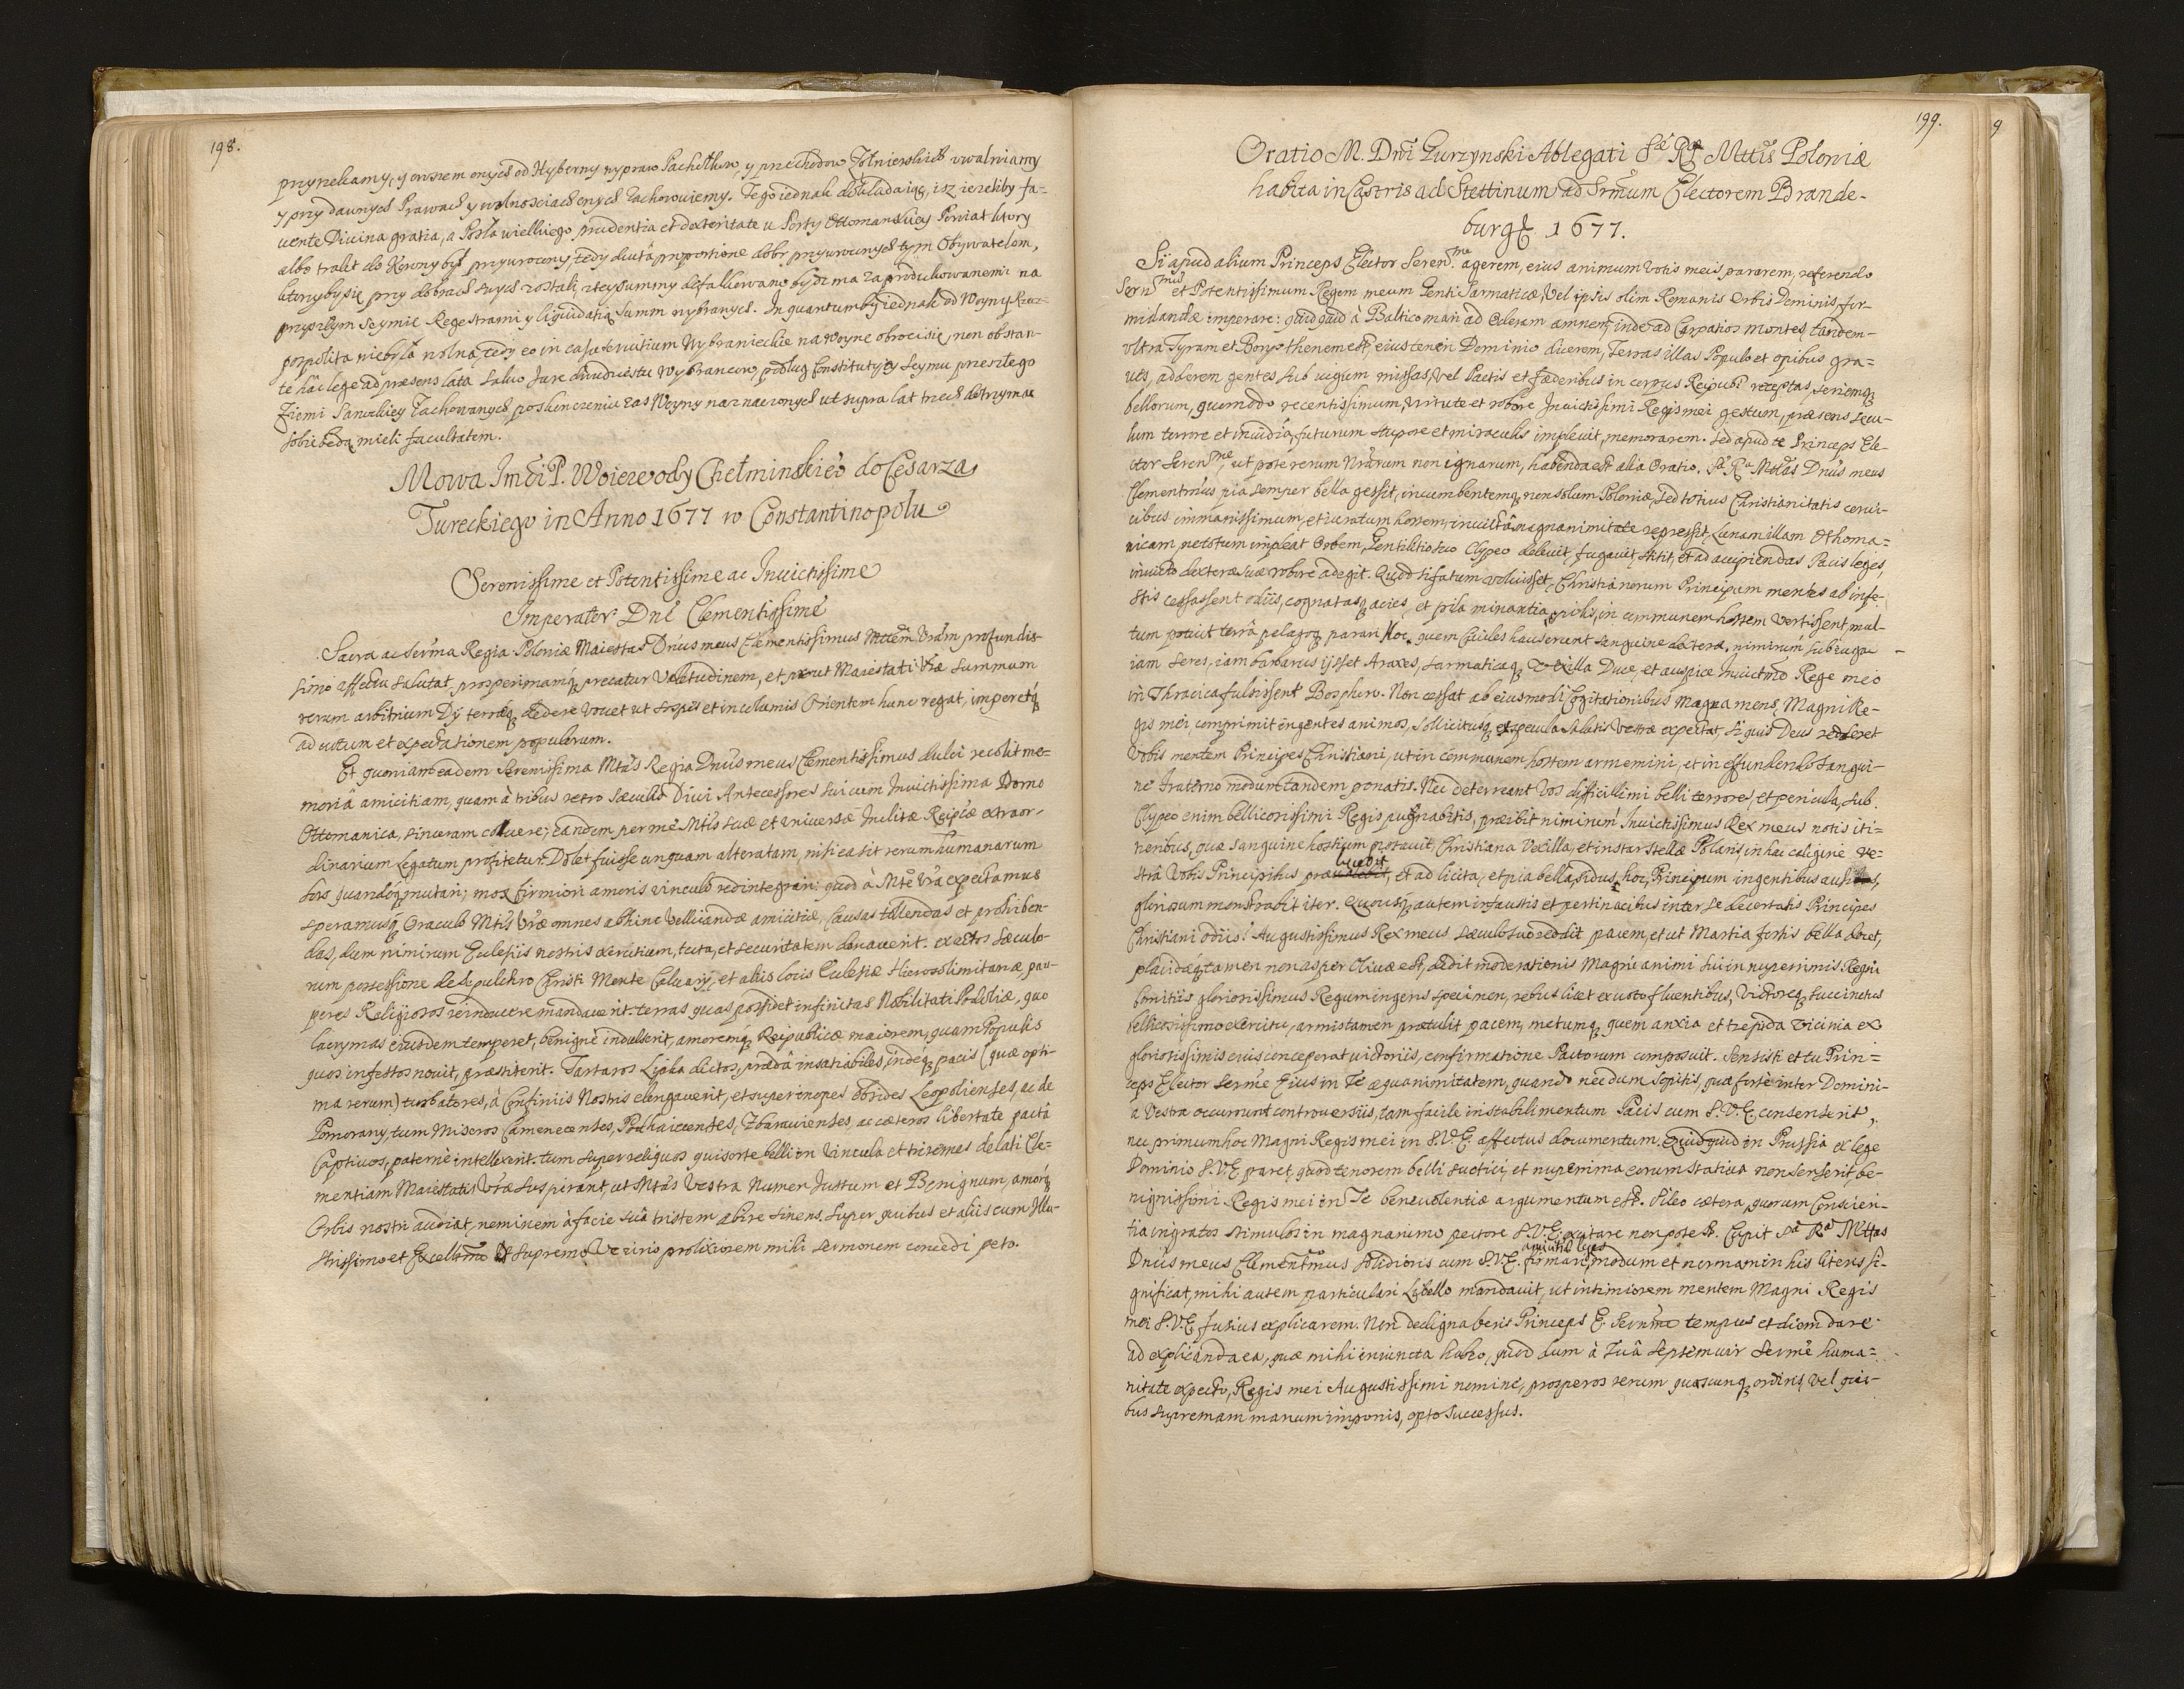 198.
przyrzekamy, y owszem onych od Hyberny wypraw Pachołków, y przechodow Żołnierskich uwalniamy
y przy dawnych Prawach y wolnosciach onych zachowuiemy. Tego iednak dokładaiąc, isz ieżeliby fa-
vente Divina gratia, a Posła wielkiego prudentia et dexteritate u Porty Ottomanskiey Powiat ktory
albo trakt do Korony był przywrocony, tedy ducta proportione dobr przywroconych tym Obywatelom,
ktorzyby się przy dobrach swych zostali, z tey summy defalkowano bydz ma za produkowanemi na
przyszłym Seymie Regestrami y liquidatią Summ wybranych. In quantum by iednak od Woyny Rzecz-
pospolita niebyła wolna, tedy eo in casu servitium Wybranieckie na woyne obrocisię, non obstan-
te hac lege ad præsens lata salvo Jure dwudziestu Wybrancow, podług Constitutiey Seymu przeszłego
Ziemi Sanockiey zachowanych po skonczeniu zas Woyny naznaczonych ut supra lat trzech dotrzymac
sobie będą mieli facultatem.
Mowa Jmći P. Woiewody Chełminskie° do Cesarza
Tureckiego in Anno 1677 w Constantinopolu
Serenissime et Potentissime ac Invictissime
Imperator Dne Clementissime
Sacra ac Serma Regia Poloniæ Maiestas Dnus meus Clementissimus Mttem Vram profundis-
simo affectu salutat, prosperimamq precatur Valetudinem, et prout Maiestati Vræ summum
rerum arbitrium Dij terræq dedere vovet ut sospes et incolumis Orientem hunc regat, imperetq
ad votum et expectationem populorum.
Et quoniam eadem Serenissima Mtas Regia Dnus meus Clementissimus dulci recolit me-
moriâ amicitiam, quam à tribus retro sæculis Divi Antecessores sui cum Invictissima Domo
Ottomanica, sinceram coluere; eandem per me Mtis suæ et universæ Inclitæ Reipcæ extraor-
dinarium Legatum profitetur. Dolet fuisse unquam alteratam, nisi ea sit rerum humanarum
sors quandoq mutari; mox firmiori amoris vinculo redintegrari: quod à Mte Vra expectamus
speramusq Oraculo Mtis Vræ omnes abhinc vellicandæ amicitiæ, causas tollendas et prohiben-
das, dum nimirum Eclesiis nostris exercitium, tuta, et securitatem donaverit. exactos sæculo-
rum possessione de Sepulchro Christi Monte Calvarij, et aliis locis Eclesiæ Hierosolimitanæ, pau-
peres Religiosos reinducere mandaverit. terras quas possidet infinitas Nobilitati Podoliæ, quo
lacrymas eiusdem temperet, benignè indulserit, amoremq Reipublicæ maiorem, quam Populis
quos infestos novit, præstiterit. Tartaros Lipka dictos, prædâ insatiabiles, indeq pacis (quæ opti-
ma rerum) turbatores, à Confiniis Nostris elongaverit, et super inopes obsides Leopolienses, ac de
Pomorany, tum Miseros Camenecenses, Podhaiecenses, Zbaravienses, ac cæteros libertate pactâ
Captivos, paternè intellexerit. tum super reliquos qui sorte belli in vincula et triremes delati Cle-
mentiam Maiestatis Vræ suspirant, ut Mtas Vestra Numen Justum et Benignum, amorq
Orbis nostri audiat, neminem à facie suâ tristem abire sinens. Super quibus et aliis cum Illu-
strissimo et Excellmo Supremo Vezirio prolixiorem mihi sermonem concedi peto.
199.
Oratio M. Dni Gurzynski Ablegati Sæ Ræ Mttis Poloniæ
habita in Castris ad Stettinum ad Srmum Electorem Brande-
burg. 1677.
Si apud alium Princeps Elector Seren.me agerem, eius animum votis meis pararem, referendo
Sern.mus et Potentissimum Regem meum Genti Sarmaticæ, vel ipsis olim Romanis Orbis Dominis for-
midandæ imperare: quidquid à Baltico mari ad Oderam amnem, inde ad Carpatios Montes, tandem
ultra Tyram et Borysthenem est, eius teneri Dominio dicerem, Terras illas Populo et opibus gra-
ves, adderem gentes sub iugum missas, vel Pactis et fæderibus in corpus Reipubl receptas, seriemq
bellorum, quomodo recentissimum, virtute et robore Invictissimi Regis mei gestum, præsens secu-
lum terrore et invidia, futurum stupore et miraculis implevit, memorarem. Sed apud te Princeps Ele-
ctor Seren.me, ut pote rerum Nrarum non ignarum, habenda est alia Oratio. Sa Ra Mttas Dnus meus
Clementmus pia semper bella gessit, incumbentemq non solum Poloniæ, sed totius Christianitatis cervi-
cibus immanissimum, et iuratum hostem, invictâ magnanimitate repressit, Lunam illam Othoma-
nicam, ne totum impleat Orbem, Gentilitio suo Clypeo delevit, fugavit, stitit, et ad accipiendas Pacis leges,
invicto dexteræ suæ robore adegit. Quod si fatum voluisset, Christianorum Principum mentes ab infe-
stis cessassent odiis, cognatasq acies, et pila minantia pilis, in communem hostem vertissent, mul-
tum potuit terrâ pelagoq parari hoc, quem Civiles hauserunt sanguine dexteræ, nimirum sub iuga
iam Seres, iam barbarus ijsset Araxes, Sarmaticaq vexilla Duce, et auspice Invictmo Rege meo
in Thracico fulsissent Bosphoro. Non cessat ab eiusmodi Cogitationibus Magna mens, Magni Re-
gis mei, comprimit ingentes animos, sollicitusq e specula Salutis Vestræ expectat, si quis Deus redderet
Vobis mentem Principes Christiani, ut in communem hostem armemini, et in effundendo sangui-
ne fraterno modum tandem ponatis. Nec deterreant Vos difficillimi belli terrores, et pericula, sub
Clypeo enim bellicosissimi Regis pugnabitis, præibit nimirum Invictissimus Rex meus notis iti-
neribus, quæ sanguine hostium prostravit, Christiana Vexilla, et instar stellæ Polaris, in hac caligine ve-
strâ Vobis Principibus prælucebit, et ad licita, et pia bella, sidus hoc, Principum ingentibus ausis,
gloriosum monstrabit iter. Quousq autem infaustis et pertinacibus inter se decertatis Principes
Christiani odiis! Augustissimus Rex meus sæculo suo reddit pacem, et ut Martia fortis bella docet,
placidæq tamen non asper Olivæ est, dedit moderationis Magni animi sui in nuperrimis Regni
Comitiis gloriosissimus Regum ingens specimen, rebus licet ex voto fluentibus, Victoreq succinctus
bellicosissimo exercitu, armis tamen prætulit pacem, metumq quem anxia et trepida vicinia ex
gloriosissimis eius conceperat victoriis, confirmatione Pactorum composuit. Sensisti et tu Prin-
ceps Elector Serme Eius in Te æquanimitatem, quando necdum sopitis, quæ forte inter Domini-
a Vestra occurrunt controversiis, tam facile in stabilimentum Pacis cum S.V.E. consenserit,
nec primum hoc Magni Regis mei in S.V.E. affectus documentum, quidquid in Prussia ex lege
Dominio S.V.E. paret, quod tenorem belli Suetici, et nuperrima eorum stativa non senserit, be-
nignissimi Regis mei in Te benevolentiæ argumentum est. Sileo cætera, quorum Conscien-
tia ingratos stimulos in magnanimo pectore S.V.E. excitare non potest. Cupit Sa Ra Mttas
Dnus meus Clementmus solidioris cum S.V.E. amicitiæ leges firmare, modum et normam in his literis si-
gnificat, mihi autem particulari Libello mandavit, ut intimiorem mentem Magni Regis
mei S.V.E. fusius explicarem. Non dedignaberis Princeps E. Sernme tempus et diem dare
ad explicanda ea, quæ mihi iniuncta habeo, quod dum à Tuâ Septemvir Serme huma-
nitate expecto, Regis mei Augustissimi nomine, prosperos rerum quascunq ordiris, vel qui-
bus supremam manum imponis, opto Successus.
9